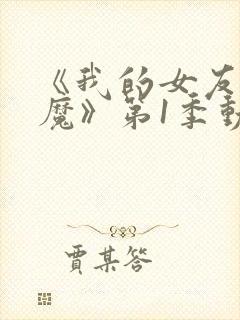 《我的女友
魔》第1季動
賈某答